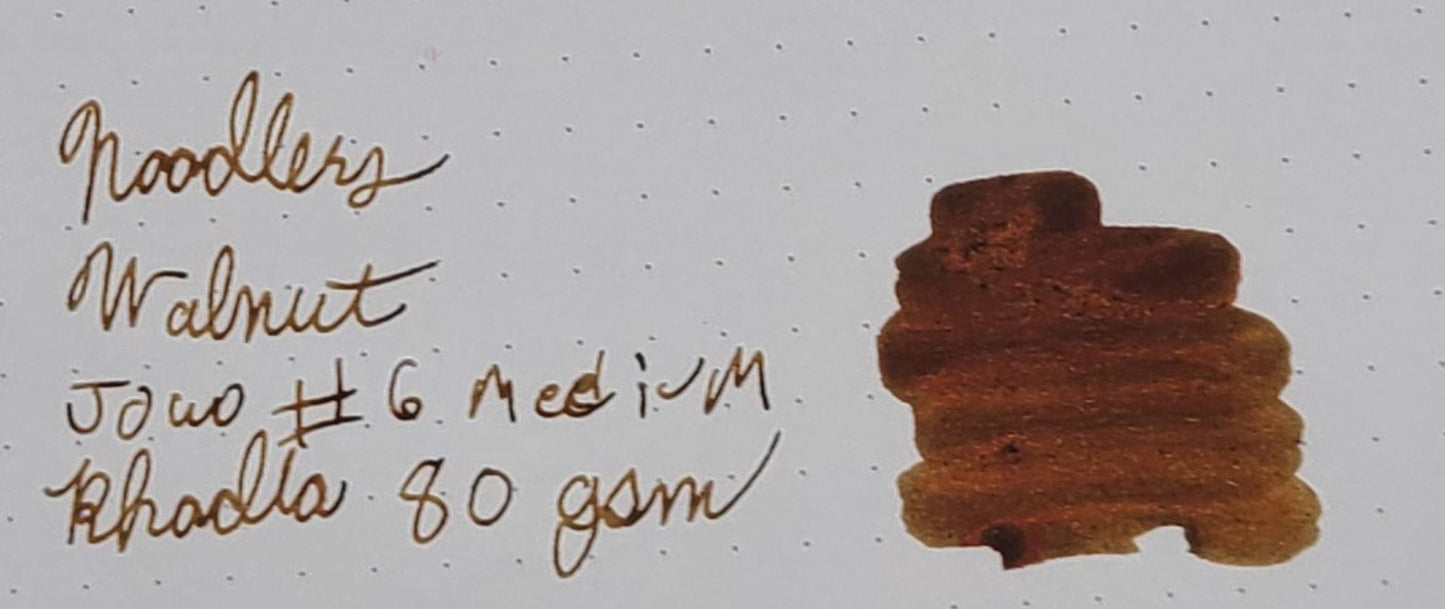 Noodlers
Walnut
Jowo #6 Medium
Rhodia 80 gsm